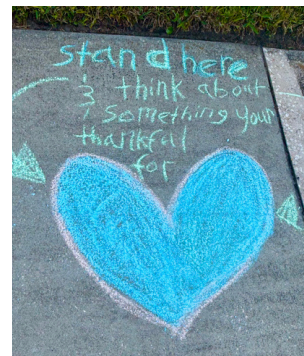 stand here
& think about
something your
thankful
for